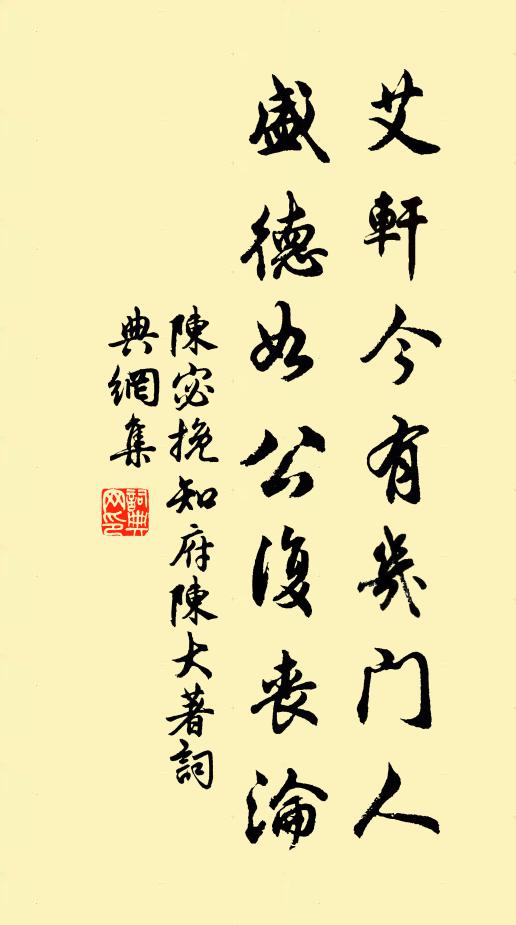 艾軒今有幾門人
盛德如公復喪淪
陳宓挽知府陳大著詞
典網集
詞典網印